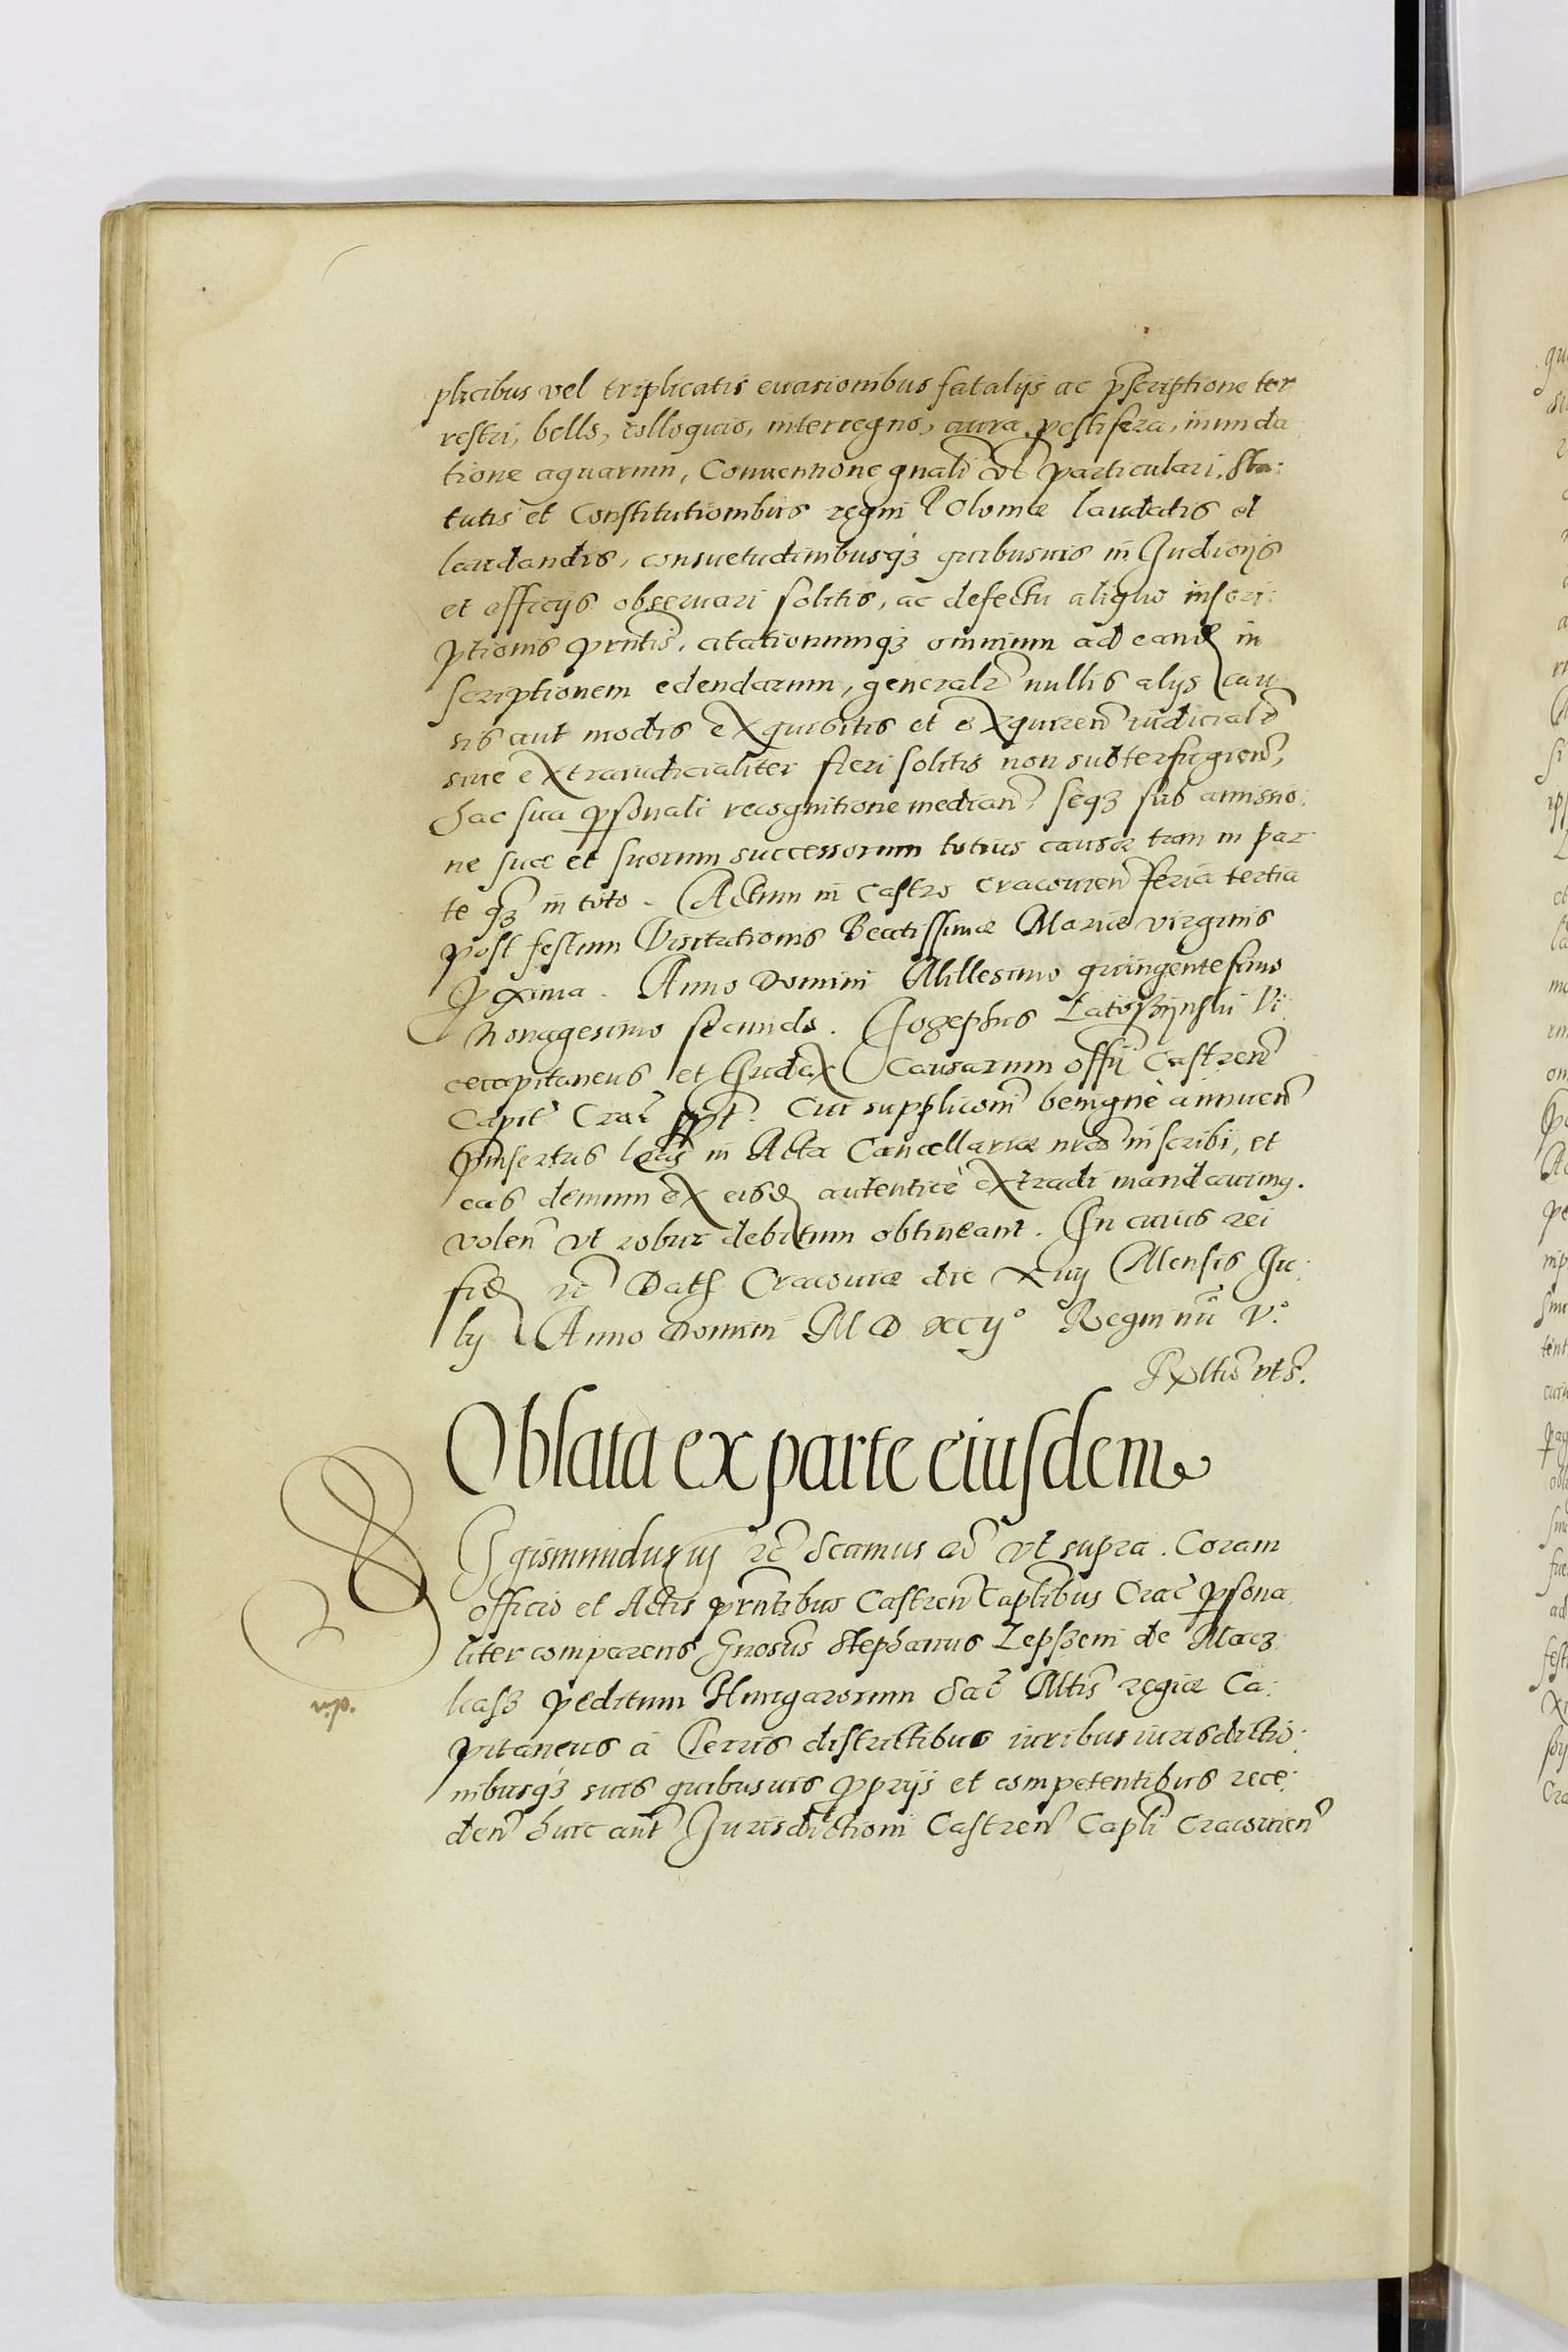 plicibus vel triplicatis euasionibus fatalijs ac pscriptione ter
restri, bello, colloquio, interregno, aura pestifera, inunda
tione aquarum, Conuentione gnali vel particulari. Sta:
tutis et Constitutionibus regni Poloniae laudatis et
laudandis, consuetudinibusq3 quibusuis in Iudicijs
et officijs obseruari solitis, ac defectu aliquo inscri:
ptionis prntis, citationumq3 omnium ad eand in
scriptionem edendarum, generalr nullis alijs cau
sis aut modis exquisitis et exquiren iudicialr
siue extraiudicialiter fieri solitis non subterfugien,
hac sua psonali recognitione median, seq3 sub amissio:
ne suae et suorum successorum totius causae tam in par
te q3 in toto. Actum in Castro Cracouien feria tertia
post festum Visitationis Beatissimae Mariae virginis
proxima. Anno Domini Millesimo quingentesimo
Nonagesimo secundo. Iosephus Zatoskijnski Vi
cecapitaneus et Iudex Causarum offij Castren
Capit Crac Cui suppliconi benigne annuen
pinsertas lras in Acta Cancellariae nrae inscribi, et
eas demum ex eisd autentice extradi mandauimg.
volen vt robur debitum obtineant. In cuius rei
fid rc Dat Cracouiae die Mensis Iu:
lij Anno Domini M D XCIJ° Regni nri V°.
Rltio vt s.
Oblata ex parte eiusdem
Sigismundus iij rc Scamus rc vt supra. Coram
officio et Actis prntibus Castren Caplibus Crac psona
liter comparens Gnosus Stephanus Lepszeni de Macz:
kasz peditum Hungarorum Sac Mtis regiae Ca:
pitaneus a Terris districtibus iuribus iurisdictio:
nibusq3 suis quibusuis pprijs et competentibus rece:
den huic aut Iurisdictioni Castren Capli Cracouien